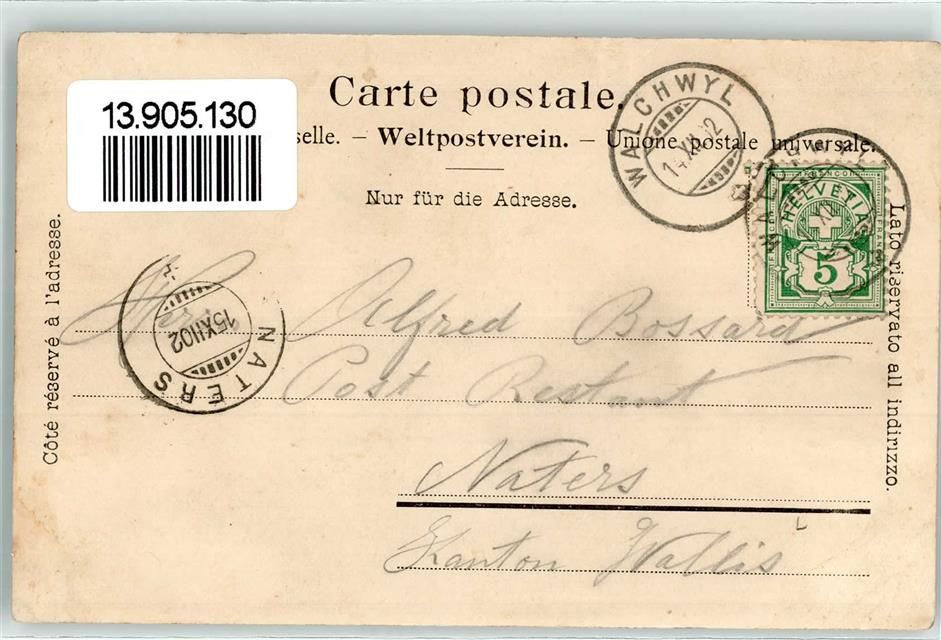 Carte postale.
13.905.130
selle. – Weltpostverein. – Unione postale universale.
Nur für die Adresse.
WALCHWYL
XII 02
FRANCO
HELVETIA
5
Côté réservé à l'adresse.
Lato riservato all indirizzo.
NATERS
15 XII 02
Herr Alfred Bossard
Post Restant
Naters
Kanton Wallis